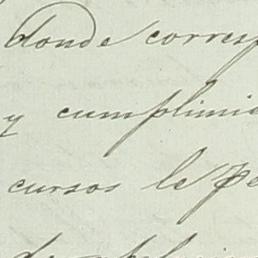 donde corresp
y cumplimie
cursos le pe